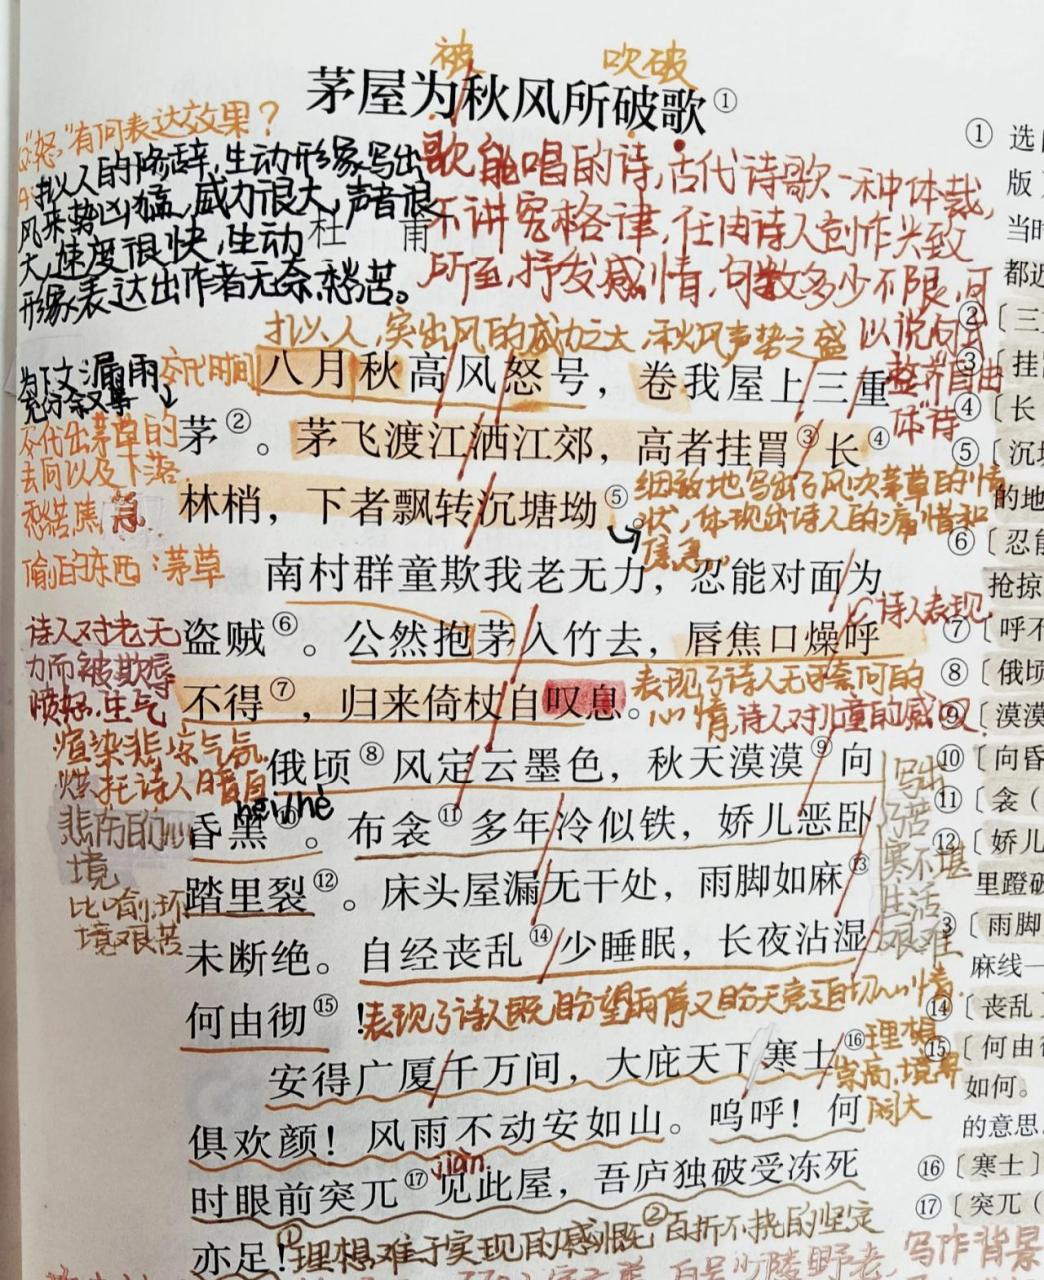 被 吹破
茅屋为秋风所破歌①
Q:"怒"有何表达效果？
A:拟人的修辞,生动形象写出
风来势凶猛,威力很大,声音很
大,速度很快,生动
形象表达出作者无奈愁苦。
杜 甫
歌能唱的诗,古代诗歌一种体裁,
不讲究格律,任由诗人创作兴致
所至,抒发感情,句数多少不限,可
以说句式
整齐自由
体诗
扎以人,突出风的威力之大,秋风声势之盛
为下文漏雨
充分叙事
交代时间
八月秋高风怒号，卷我屋上三重
茅②。茅飞渡江洒江郊，高者挂罥③长④
林梢，下者飘转沉塘坳⑤。
交代出茅草的
去向以及下落
愁苦焦急
细致地写出了风吹茅草的情
状,体现出诗人的痛惜和
焦急。
偷的东西:茅草
南村群童欺我老无力，忍能对面为
盗贼⑥。公然抱茅入竹去，唇焦口燥呼
不得⑦，归来倚杖自叹息。
诗人对老无
力而被欺辱
愤怒.生气
诗人表现
表现了诗人无可奈何的
心情,诗人对儿童的感叹
渲染悲凉气氛
烘托诗人暗自
悲伤的心
境
俄顷⑧风定云墨色，秋天漠漠⑨向
hei/hè
昏黑⑩。布衾⑪多年冷似铁，娇儿恶卧
踏里裂⑫。床头屋漏无干处，雨脚如麻⑬
未断绝。自经丧乱⑭少睡眠，长夜沾湿
何由彻⑮！
比喻,环
境艰苦
写出
穷苦
寒不堪
生活
艰难
表现了诗人既盼望雨停又盼天亮迫切心情.
安得广厦千万间，大庇天下寒士⑯
俱欢颜！风雨不动安如山。呜呼！何
时眼前突兀⑰见此屋，吾庐独破受冻死
亦足！
理想
崇高,境界
阔大
jiàn
①理想难于实现的感慨②百折不挠的坚定
自号少陵野老
写作背景
① 选
版
当时
都近
②〔三
③〔挂罥
④〔长
⑤〔沉塘
的地
⑥〔忍能
抢掠
⑦〔呼不
⑧〔俄顷
⑨〔漠漠
⑩〔向昏
⑪〔衾（
⑫〔娇儿
里蹬破
⑬〔雨脚
麻线一
⑭〔丧乱〕
⑮〔何由彻
如何。
的意思
⑯〔寒士〕
⑰〔突兀（